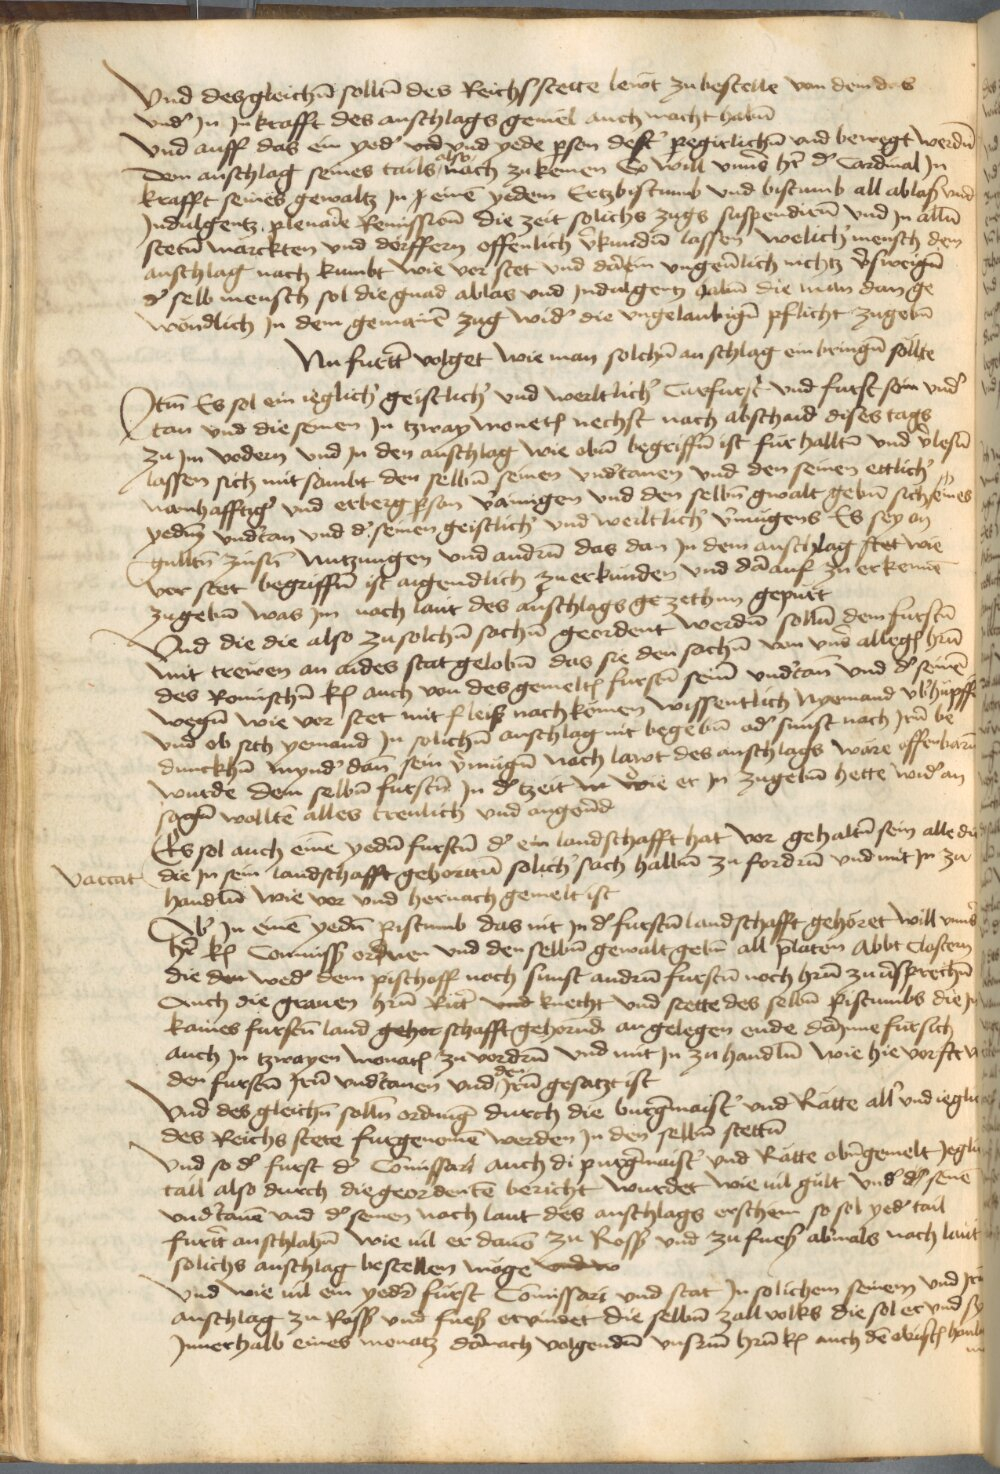 Vnd desgleichñ solltñ des Reichsstette lewt zu bestelle von dem das
vnd' In In krafft des anschlags gemel auch macht habñ
Vnd auff das ein yed' vnd yede pson dest' pegirlichñ vnd bewegt werdñ
dem anschlag seines tails also nach zu komen So will vnnser hr̃ d' Cardinal In
krafft seines gewaltz In einem yedem Ertzbistumb vnd bistumb all ablass vnd
Indulgentz plenarie Remissionñ die zeit solichs zugs suspendirñ vnd In allñ
stetñ marckten vnd dorffern offenlich v'kundñ lassen welich' mensch dem
anschlag nach kumbt wie vor stet vnd darein vngeuerlich nichtz v'sweigñ
d' selb mensch sol die gnad ablas vnd Indulgentz habñ die man dan ge
wondlich In dem gemainē zug wid' die vngelaubigñ pflicht zugebñ
Nu furtt volget wie man solchñ anschlag einbringñ sollte
Itm̃ Es sol ein ieglich' geistlich' vnd werltlich' Curfurst vnd furst sein vnd'
tan vnd die seinen In tzway monetñ nechst nach abschaid dises tags
zu Im vodern vnd In den anschlag wie obñ begriffñ ist fur halltñ vnd v'lesñ
lassen sich mit sambt den selbñ seinen vnd'tanen vnd den seinen ettlich'
namhafftig' vnd erberg p̃son v'ainigen vnd den selbñ gwalt gebñ sich eines
yedñ vnd'tan vnd d' seinen geistlich' vnd werltlich' v'mugens Es sey an
gulltñ zinsñ Nutzungen vnd andrñ das dan In dem anschlag stet wie
vor stet begriffñ ist aigendlich zu erkunden vnd darauf zu erkennē
zugebñ was Im nach laut des anschlags gezethun gepurt
Vnd die die also zu solchñ sachñ geordent werdñ sollñ dem furstñ
mit trewen an aides stat gelobñ das sie den sachñ von vnns allergñ hrñ
des Romischñ kñ auch von des gemeltñ furstñ seinñ vnd'tan vnd d' seinē
wegñ wie vor stet mit fleiß nachkomen wissentlich Nyemand v'bhupffñ
vnd ob sich yemand In solichñ anschlag nit begebñ od' sunst nach Irñ be
dunckhñ mynd' dan sein v'mugñ nach lawt des anschlags wäre offenbarñ
wurde dem selbñ furstñ In d' tzeit wie er In zugebñ hette wid'an
sagñ wolltē alles treulich vnd angeuerd
Es sol auch eine yedñ furstñ d' ein landschafft hat vor gehaltñ sein alle die
Vaccat
die In sein landschafft gehorñ solich' sach halbñ zu fordrñ vnd mit In zu
handlñ wie vor vnd hernach gemelt ist
Ab' In einē yedñ pistumb das nit In d' furstñ landschafft gehöret will vnns'
hr̃ kñ Comissarj ordnen vnd den selbñ gewalt gebñ all platen Abbt Clostern
die wed' dem pischoff noch sunst andrñ furstñ noch hrñ zu u'sprechñ
Auch die grauen hrñ Ritt' vnd knecht vnd stette des selbñ pistumbs die In
kaines furstñ land gehor schafft gehornd angelegen ende darinne fur sich
auch In tzwayen monatñ zu vordrñ vnd mit In zu handlñ wie hie vor stet v
den furstñ Irñ vnd'tanen vnd den Irñ gesatzt ist
Vnd des gleichñ solln̄ ordnug durch die burg'maist' vnd Rätte all' vnd ieglich
des Reichs stete furgenomē werden In den selbñ stettñ
Vnd so d' furst d' Comissari auch di purg'maist' vnd Rätte obñgemelt Jeglich
tail also durch die geordentē bericht wurdet wie uil gult vnd d' seinē
vnd'tanē vnd d' seinen nach laut des anschlags erschein so sol yed' tail
furtt anschlahñ wie uil er dauō zu Roß vnd zu fueß abmals nach laut
solichs anschlag bestellen möge
Vnd wie uil ein yed' furst Comissari vnd stat In solichem seinem vnd Irñ
anschlag zu Roß vnd fueß ervindet die selbñ zall volks die sol er vnd sy
Innerhalb eines monatz darnach volgendñ vnsrm hrñ kñ auch dē obristñ haubt